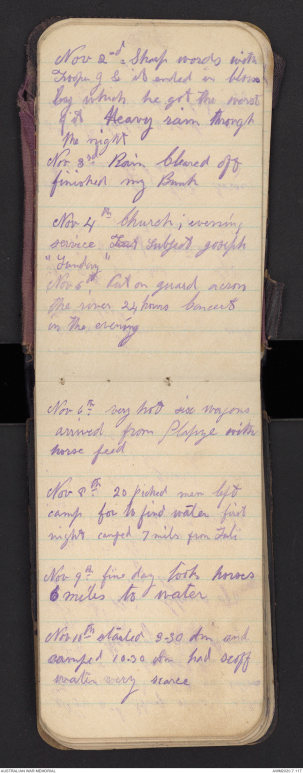 Nov 2nd Sharp words with
Trooper G & it ended in blows
by which he got the worst
of it Heavy rain through
the night
Nov 3rd Rain Cleared off
finished my Bunk
Nov 4th Church; evening
service Text Subject Joseph
"Sunday"
Nov 5th Put on guard across
the river 24 hours Concert
in the evening
Nov 6th very hot six wagons
arrived from with
horse feed
Nov 8th 20 picked men left
camp for to find water first
night camped 7 mils from Tuli
Nov 9th fine day took horses
6 miles to water
Nov 10th started 3-30 Am and
camped 10.30 Am had scoff
water very scarce
AUSTRALIAN WAR MEMORIAL